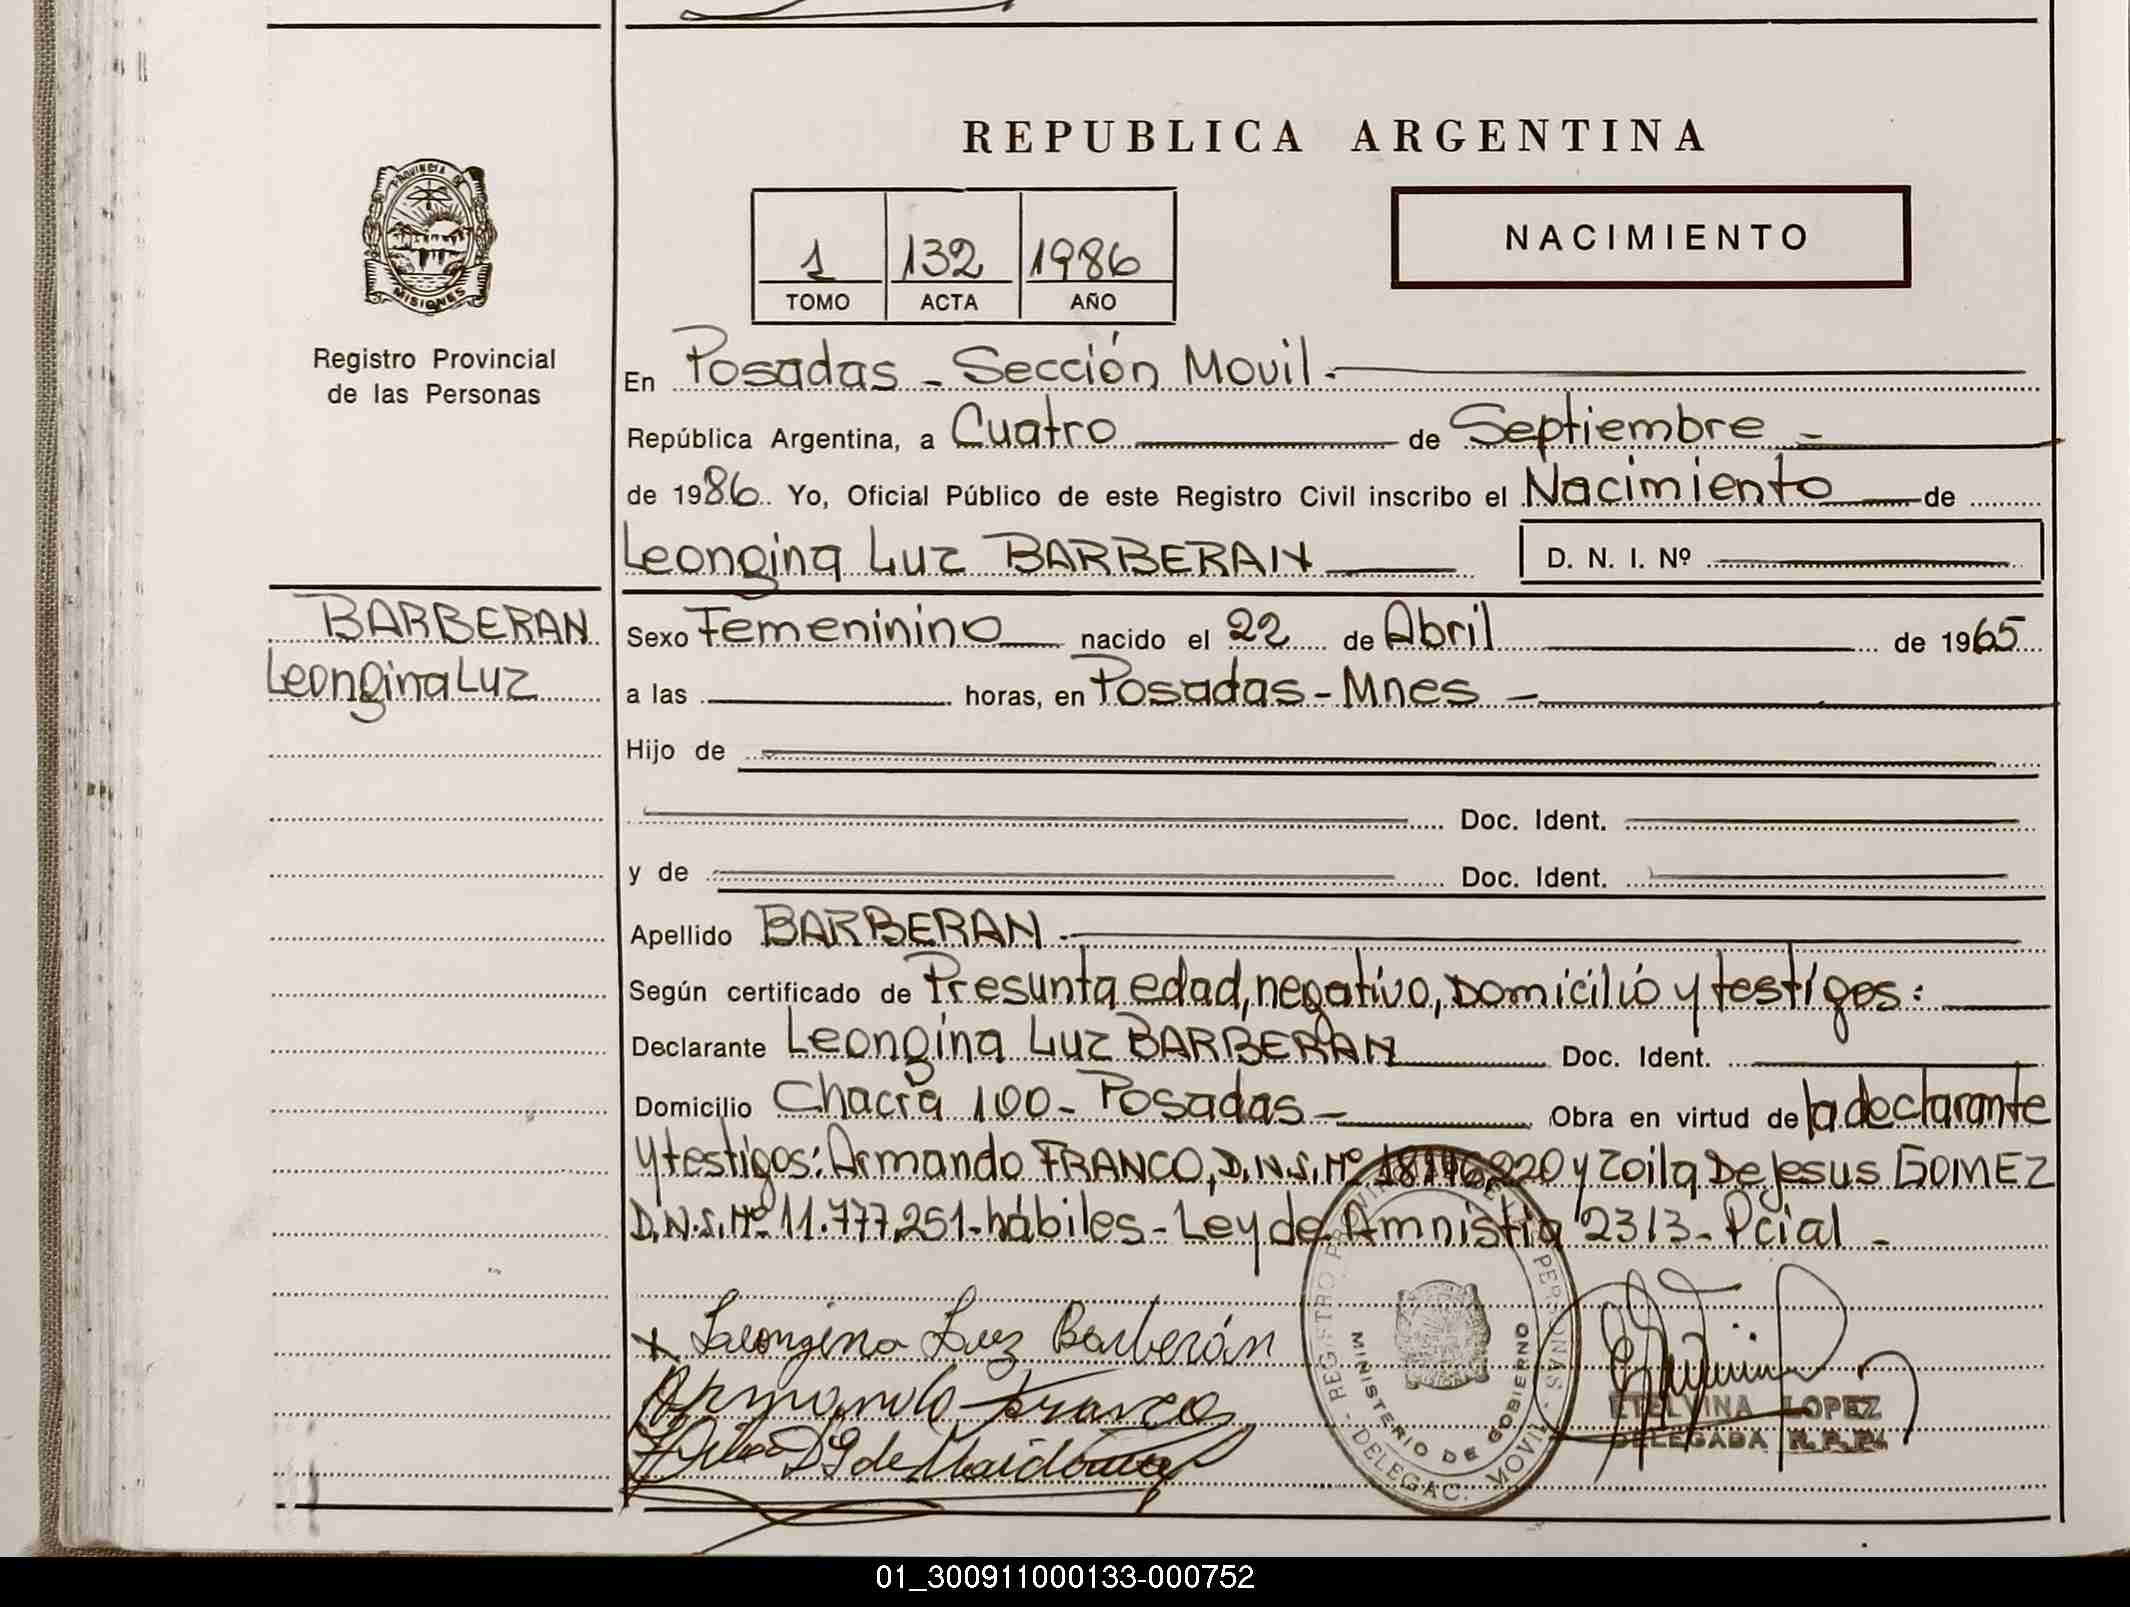 REPUBLICA ARGENTINA
PROVINCIA DE
MISIONES
Registro Provincial
de las Personas
1 132 1986
TOMO ACTA AÑO
NACIMIENTO
En Posadas - Sección Movil.
República Argentina, a Cuatro de Septiembre -
de 1986. Yo, Oficial Público de este Registro Civil inscribo el Nacimiento de
Leongina Luz BARBERAN D. N. I. Nº
BARBERAN
Leongina Luz
Sexo Femeninino nacido el 22 de Abril de 1965
a las horas, en Posadas - Mnes -
Hijo de
Doc. Ident.
y de Doc. Ident.
Apellido BARBERAN.
Según certificado de Presunta edad, negativo, Domicilio y testigos:
Declarante Leongina Luz BARBERAN Doc. Ident.
Domicilio Chacra 100 - Posadas - Obra en virtud de la declarante
y testigos: Armando FRANCO, D.N.I. Nº 220 y Zoila De Jesus GOMEZ
D.N.I. Nº 11.777.251 - hábiles - Ley de Amnistia 2313 - Pcial -
x Leongina Luz Barberán
Armando Franco
REGISTRO PROVINCIAL DE LAS PERSONAS - DELEGAC. MOVIL
MINISTERIO DE GOBIERNO
ETELVINA LOPEZ
DELEGADA R.P.P.
01_300911000133-000752